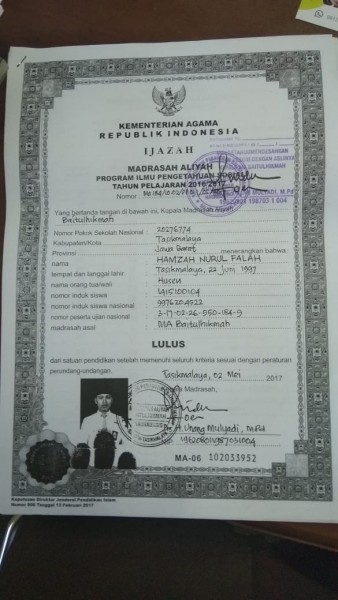 KEMENTERIAN AGAMA
REPUBLIK INDONESIA
IJAZAH
MADRASAH ALIYAH
PROGRAM ILMU PENGETAHUAN SOSIAL
TAHUN PELAJARAN 2016/2017
Nomor :
Yang bertanda tangan di bawah ini, Kepala Madrasah Aliyah
Baitulhikmah
Nomor Pokok Sekolah Nasional : 20276774
Kabupaten/Kota : Tasikmalaya
Provinsi : Jawa Barat menerangkan bahwa :
nama : HAMZAH NURUL FALAH
tempat dan tanggal lahir : Tasikmalaya, 22 Juni 1997
nama orang tua/wali : Husen
nomor induk siswa : 1415100104
nomor induk siswa nasional : 9976204922
nomor peserta ujian nasional : 3-17-02-26-550-184-9
madrasah asal : MA Baitulhikmah
LULUS
dari satuan pendidikan setelah memenuhi seluruh kriteria sesuai dengan peraturan
perundang-undangan.
Tasikmalaya, 02 Mei 2017
Kepala Madrasah,
H. Unang Mulyadi, M.Pd
MA-06 102033952
Keputusan Direktur Jenderal Pendidikan Islam
Tanggal 13 Februari 2017